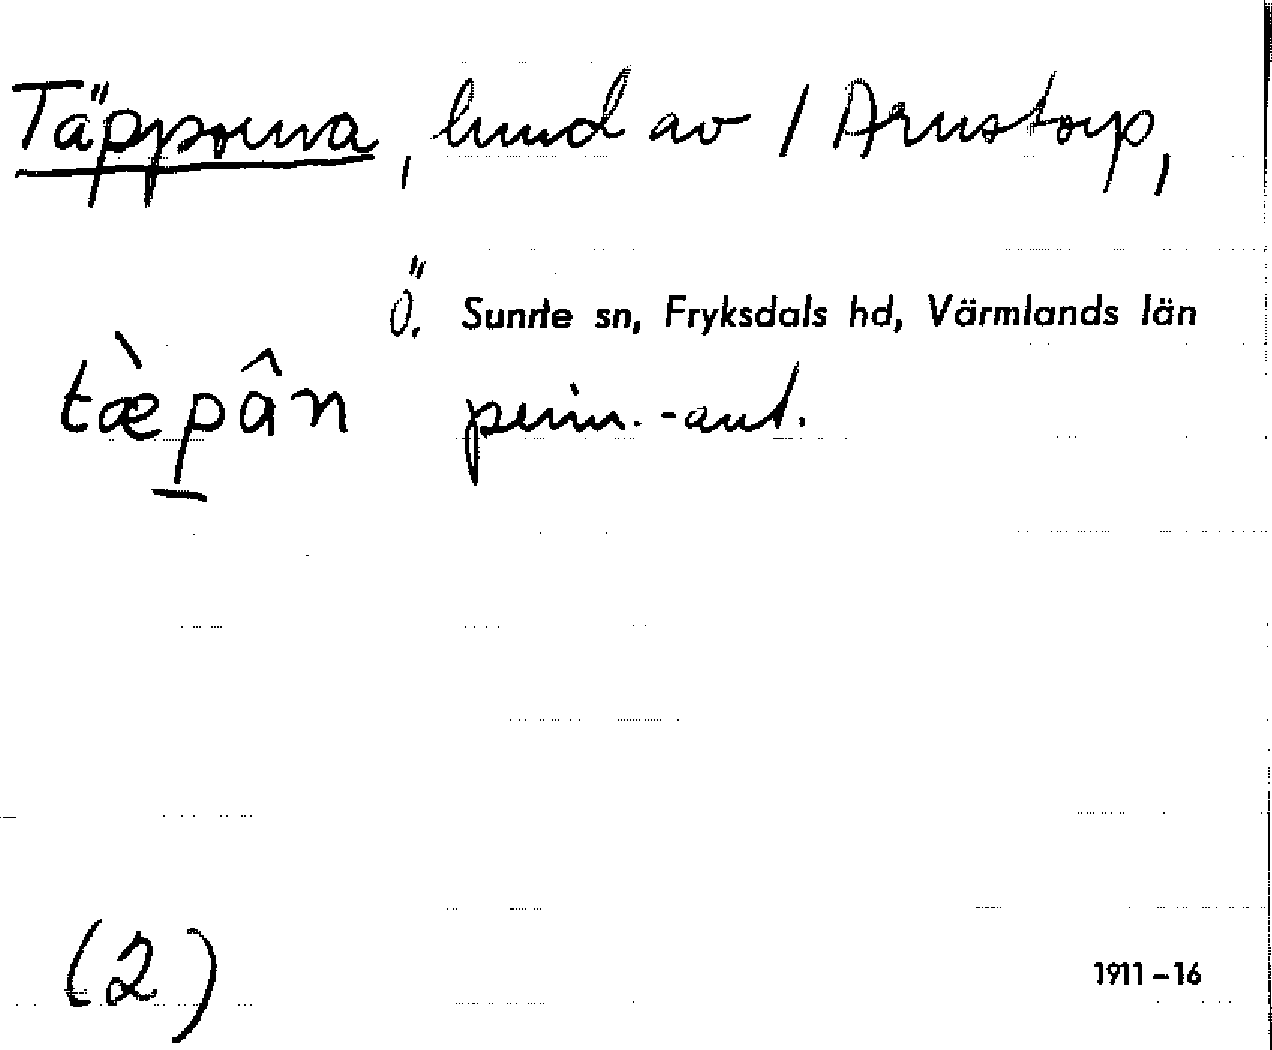 Täpporna, lund av 1 Arnstorp,
Ö. Sunne sn, Fryksdals hd, Värmlands län
tæ̀pân
(2)
1911-16